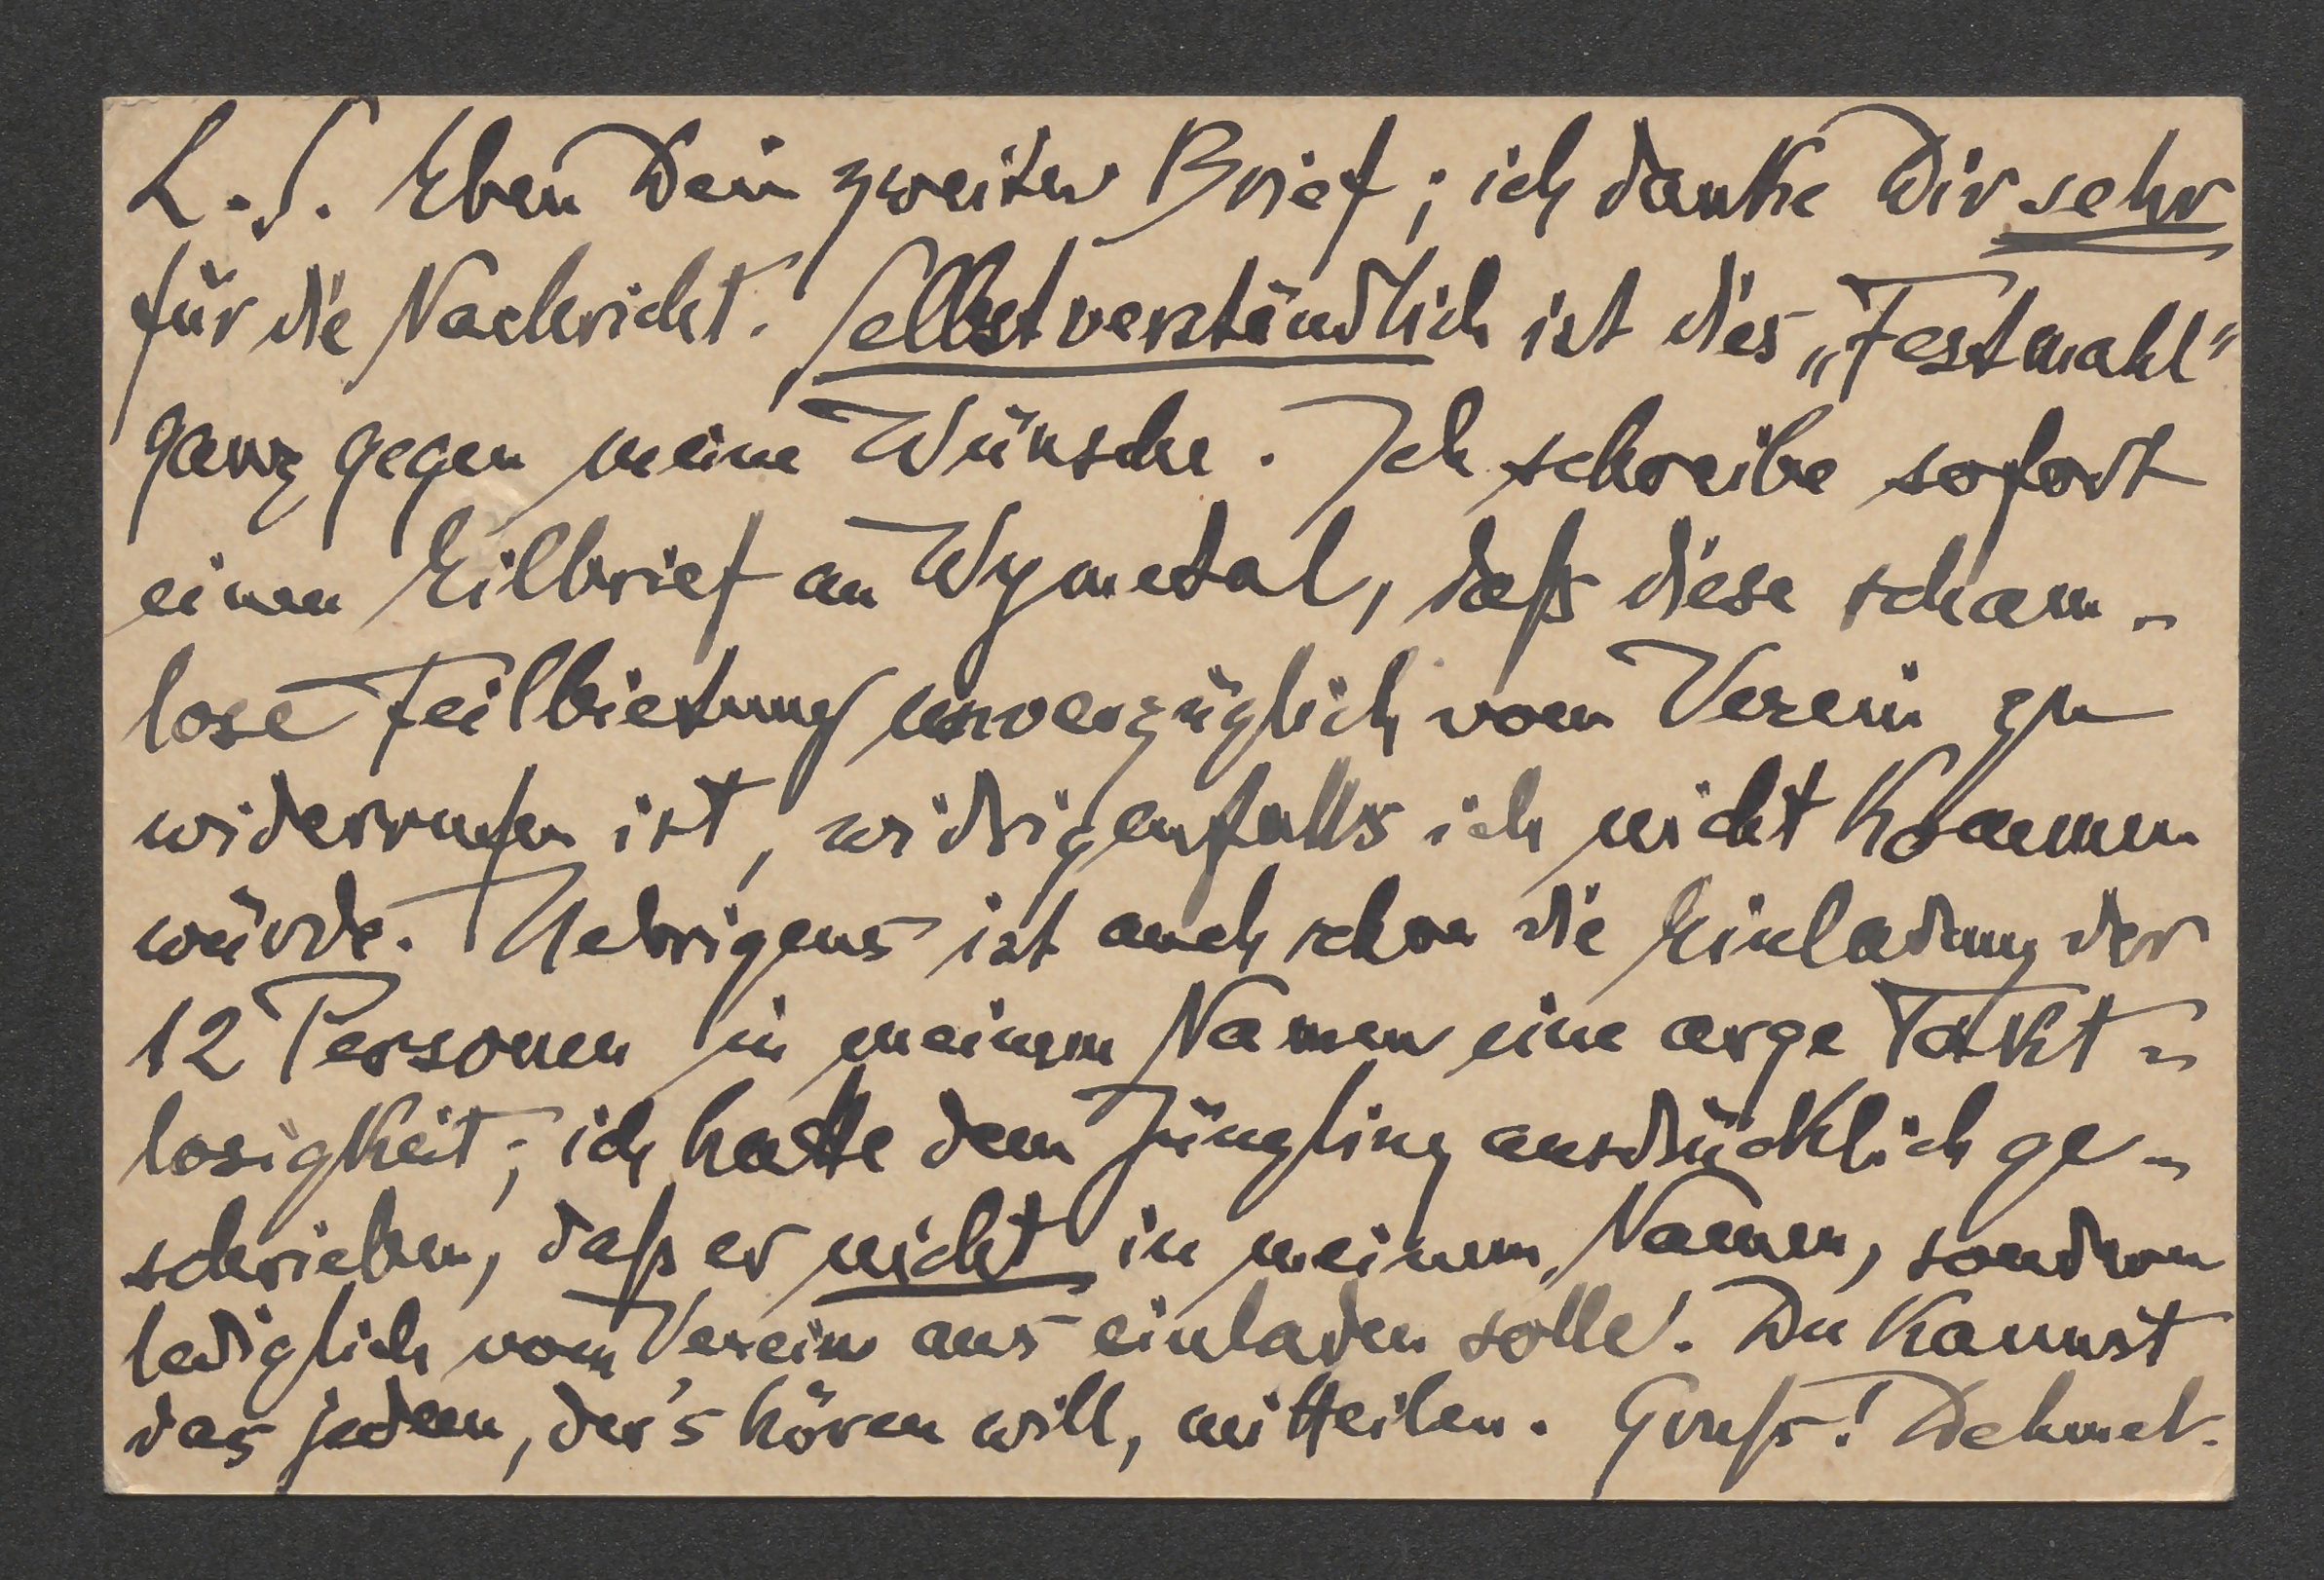 L. S. Eben Dein zweiter Brief; ich danke Dir sehr
für die Nachricht. Selbstverständlich ist dies „Festmahl“
ganz gegen meine Wünsche. Ich schreibe sofort
einen Eilbrief an Wymetal, daß diese scham-
lose Feilbietung unverzüglich vom Verein zu
widerrufen ist, widrigenfalls ich nicht kommen
würde. Uebrigens ist auch schon die Einladung der
12 Personen in meinem Namen eine arge Takt-
losigkeit; ich hatte dem Jüngling ausdrücklich ge-
schrieben, daß er nicht in meinem Namen, sondern
lediglich vom Verein aus einladen solle. Du kannst
das jedem, der's hören will, mitteilen. Gruß! Dehmel.